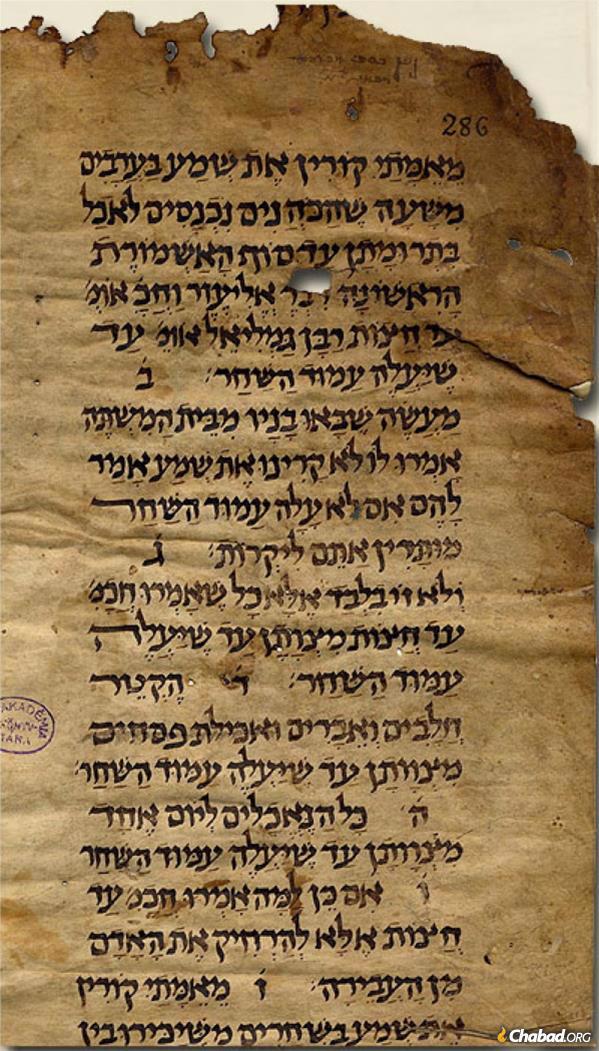 286
מאמתי קורין את שמע בערבים
משעה שהכהנים נכנסים לאכל
בתרומתן עד סוף האשמורת
הראשונה דבר אליעזר וחכ׳ אומ׳
עד חצות רבן גמליאל אומ׳ עד
שיעלה עמוד השחר׳ ב׳
מעשה שבאו בניו מבית המשתה
אמרו לו לא קרינו את שמע אמר
להם אם לא עלה עמוד השחר
מותרין אתם ליקרות׳ ג׳
ולא זו בלבד אלא כל שאמרו חכמ׳
עד חצות מצותן עד שיעלה
עמוד השחר׳ ד׳ הקטר
חלבים ואברים ואכילת פסחים
מצוותן עד שיעלה עמוד השחר׳
ה׳ כל הנאכלים ליום אחד
מצוותן עד שיעלה עמוד השחר
ו׳ אם כן למה אמרו חכמ׳ עד
חצות אלא להרחיק את האדם
מן העבירה׳ ז׳ מאמתי קורין
את שמע בשחרים משיכירו בין
AKADÉMIA
TÁRA
Chabad.ORG